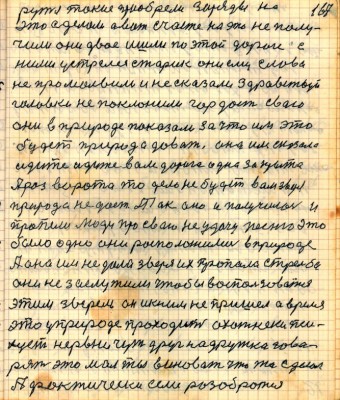 ружья такие приобрем заряды на 167
это сделом а вот счастье на это не полу-
чим они двое ишли по этой дороге с
ними устрелся старик они ему слова
не промолвим и несказали Здравствуй
головки не поклоним гордость свою
они в природе показали за что им это
будет природа довать, она им сказала
идите идите вам дорога одна закрыта
А раз ворота то дело не будит вам
природа не дает. Так оно и получилось и
протом Люди про свою не удачу
было одно они расположились вприроде
А она им не дала зверя их пропала стрельба
они не заслужили чтобы воспользоватся
этим зверем он ихним не пришел а время
это уприроде проходит охотнеки пси-
хуют нервничуть друг надружка гова-
рят это мол ты виноват что так сделал
А фактически если розобротся